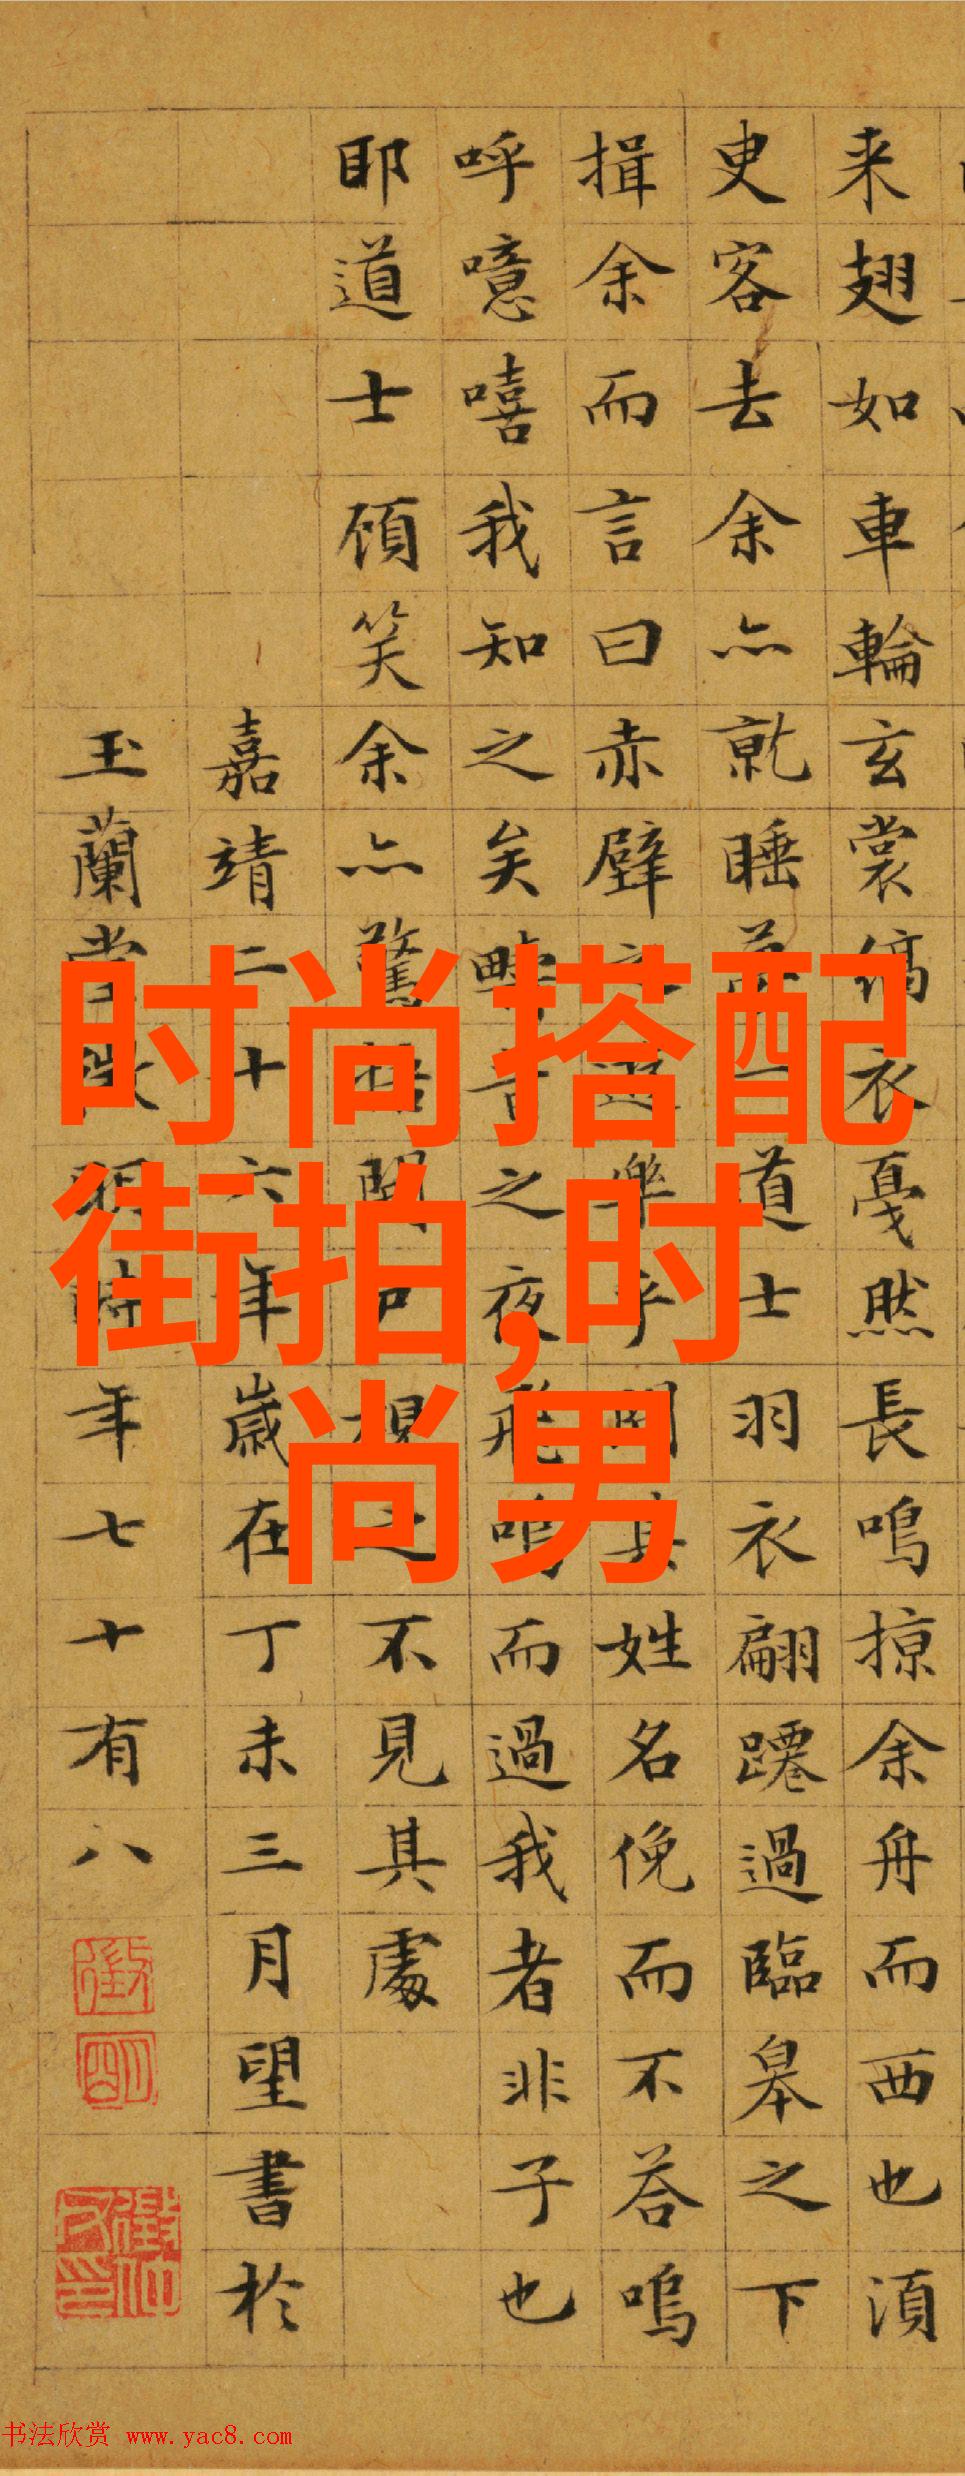 时尚搭配
街拍,时
尚男
来翅如車輪玄裳縞衣戛然長鳴掠余舟而西也湏
臾客去余亦就睡夢一道士羽衣翩躚過臨皋之下
揖余而言曰赤壁之遊樂乎問其姓名俛而不荅嗚
呼噫嘻我知之矣疇昔之夜飛鳴而過我者非子也
耶道士顧笑余亦驚悟開户視之不見其處
嘉靖二十六年歲在丁未三月望書於
玉蘭堂徵明時年七十有八
徵
明
书法欣赏 www.yac8.com